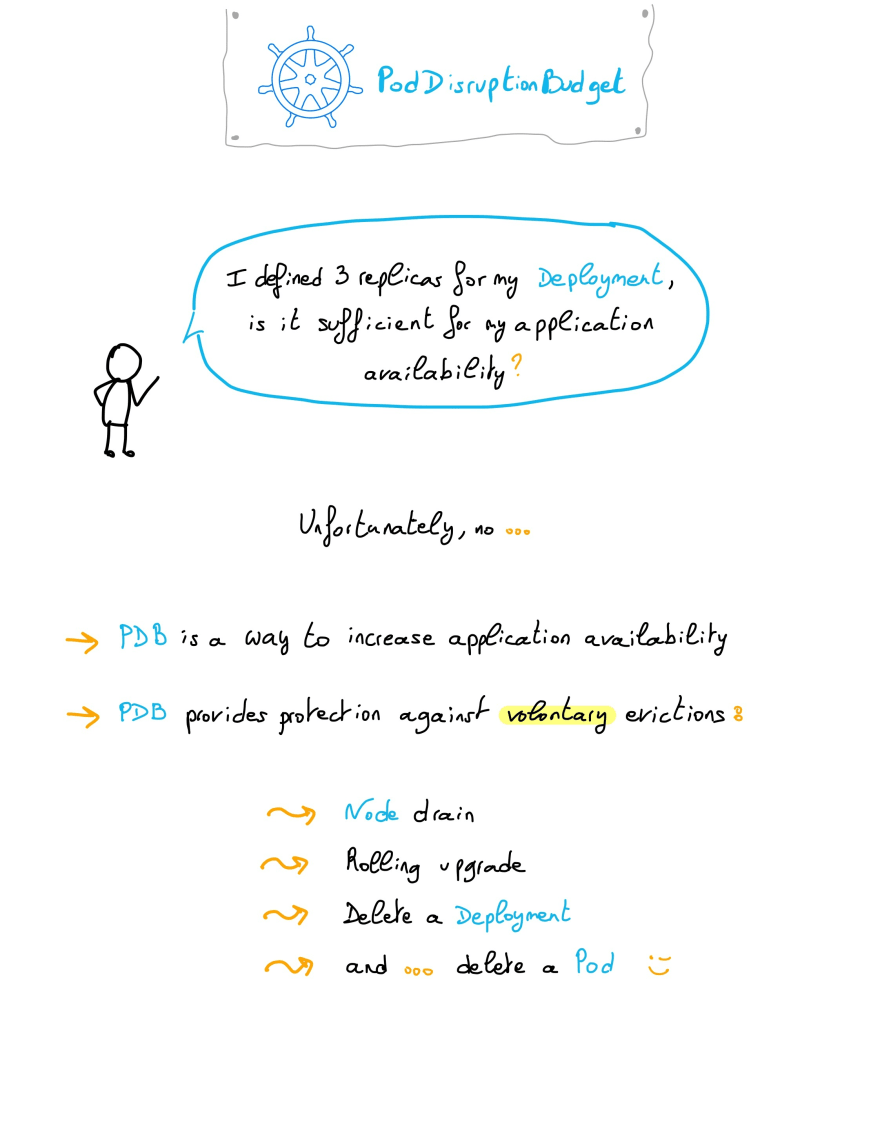 PodDisruptionBudget
I defined 3 replicas for my Deployment,
is it sufficient for my application
availability?
Unfortunately, no ...
→ PDB is a way to increase application availability
→ PDB provides protection against volontary evictions:
Node drain
Rolling upgrade
Delete a Deployment
and ... delete a Pod